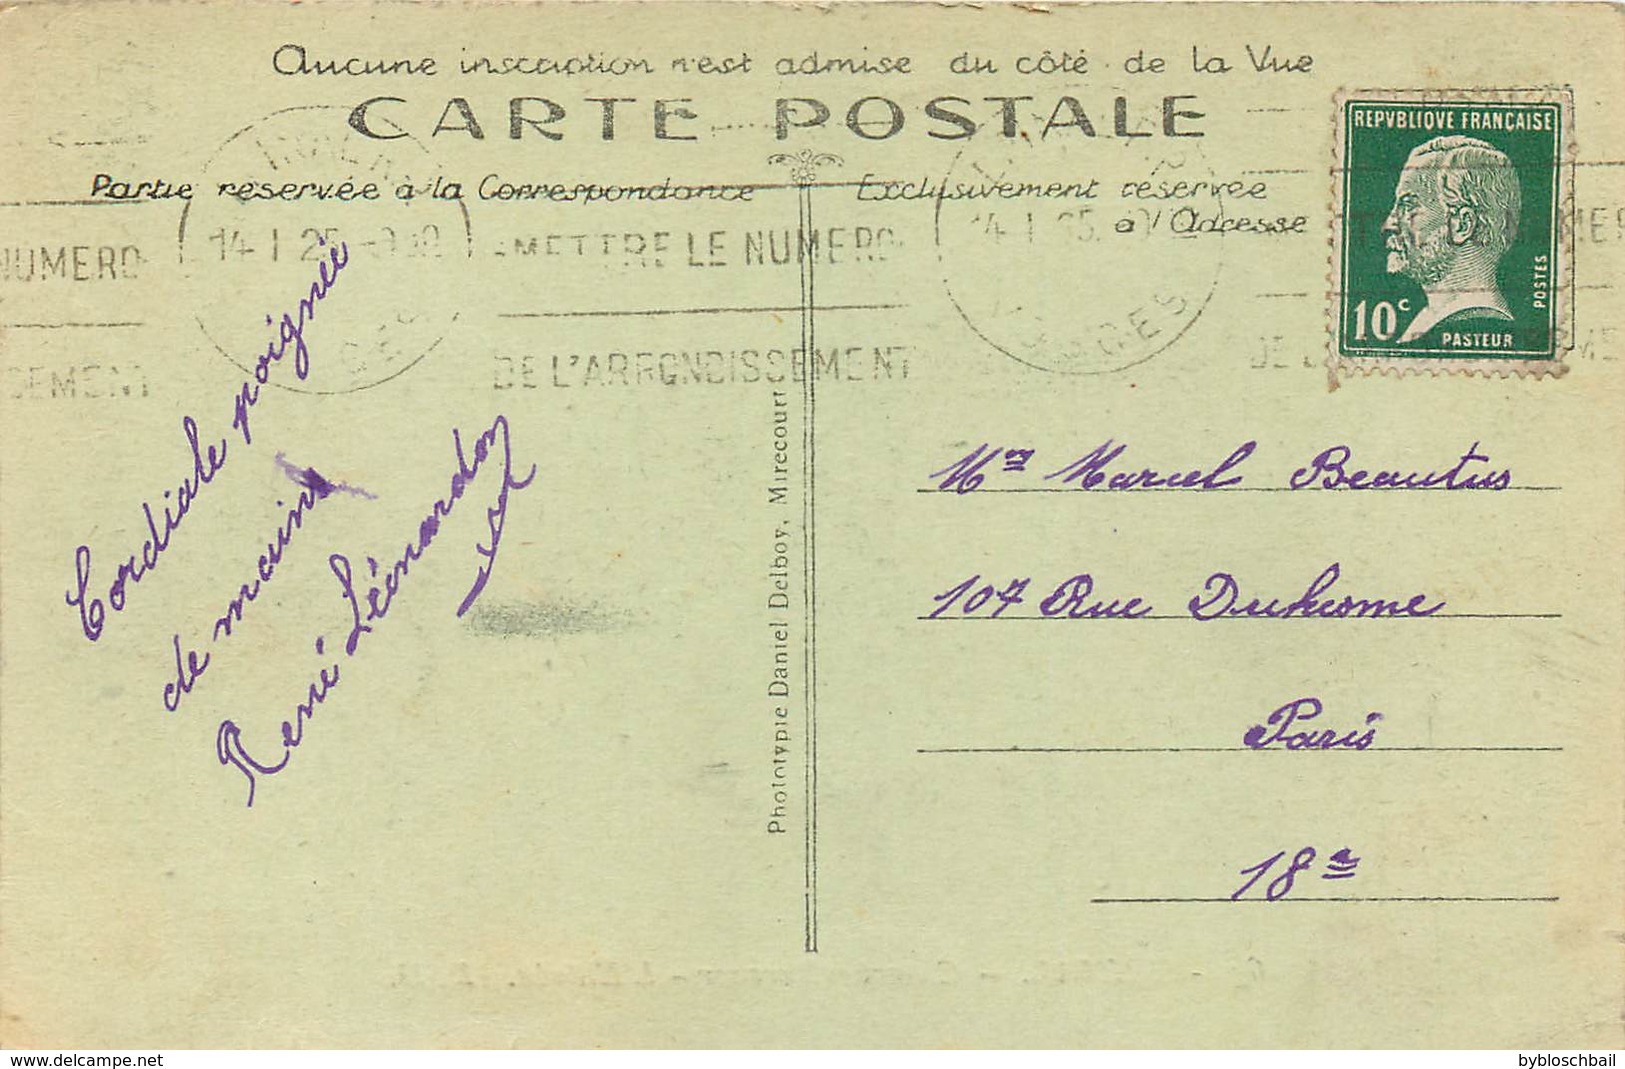 Aucune inscription n'est admise du côté de la Vue
CARTE POSTALE
Partie réservée à la Correspondance
Exclusivement réservée
à l'Adresse
REPVBLIQVE FRANÇAISE
10c
PASTEUR
POSTES
14-1 25
NUMERO
METTRE LE NUMERO
DE L'ARRONDISSEMENT
SEMENT
Cordiale poignée
de mains
René Léonardon
Phototypie Daniel Delboy, Mirecourt
Mr Marcel Beautus
107 Rue Duhesme
Paris
18e
www.delcampe.net
bybloschbail